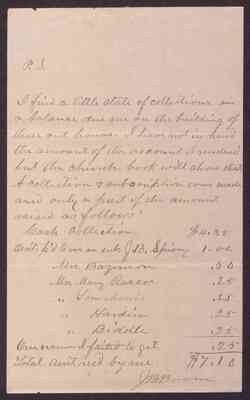 P.S.
I find a little state of collections on
a balance due me on the building of
these out houses. I have not in hand
the amount of the account I rendered
but the church book will show that
A collection & subscription were made
and only a part of the amount
raised as follows:
Cash Collection $4.35
J.B. 1.00
Mrs .50
Mrs Mary .25
" .25
" Hardin .25
" Biddle .25
One name I failed to get .25
Total Amt rec'd by me $7.10